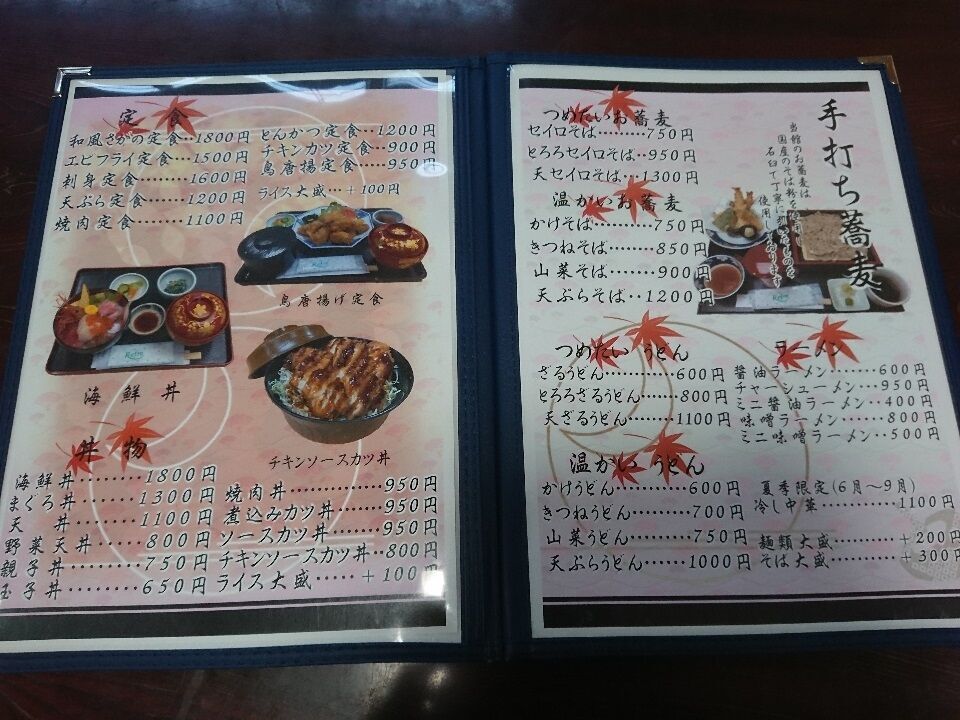 定食
和風さかの定食‥1800円
エビフライ定食‥‥1500円
刺身定食‥‥‥‥1600円
天ぷら定食‥‥‥1200円
焼肉定食‥‥‥‥1100円
とんかつ定食‥1200円
チキンカツ定食‥900円
鳥唐揚定食‥‥950円
ライス大盛‥+100円
鳥唐揚げ定食
海鮮丼
チキンソースカツ丼
丼物
海鮮丼‥‥‥‥1800円
まぐろ丼‥‥‥1300円
天丼‥‥‥‥1100円
野菜天丼‥‥‥800円
親子丼‥‥‥‥750円
玉子丼‥‥‥‥650円
焼肉丼‥‥‥‥‥‥950円
煮込みカツ丼‥‥‥950円
ソースカツ丼‥‥‥950円
チキンソースカツ丼‥800円
ライス大盛‥‥‥+100円
手打ち蕎麦
当館のお蕎麦は
国産のそば粉を使用し
石臼で丁寧に挽いたものを
使用しております
つめたいお蕎麦
セイロそば‥‥‥750円
とろろセイロそば‥950円
天セイロそば‥‥1300円
温かいお蕎麦
かけそば‥‥‥‥750円
きつねそば‥‥‥850円
山菜そば‥‥‥‥900円
天ぷらそば‥‥1200円
つめたいうどん
ざるうどん‥‥‥‥600円
とろろざるうどん‥‥800円
天ざるうどん‥‥‥1100円
温かいうどん
かけうどん‥‥‥‥‥600円
きつねうどん‥‥‥‥700円
山菜うどん‥‥‥‥‥750円
天ぷらうどん‥‥‥1000円
ラーメン
醤油ラーメン‥‥‥‥600円
チャーシューメン‥‥950円
ミニ醤油ラーメン‥400円
味噌ラーメン‥‥‥800円
ミニ味噌ラーメン‥500円
夏季限定(6月〜9月)
冷し中華‥‥‥‥‥1100円
麺類大盛‥‥‥‥+200円
そば大盛‥‥‥‥+300円